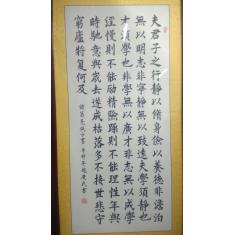 夫君子之行靜以脩身儉以養德非澹泊
無以明志非寧靜無以致遠夫學須靜也
才須學也非學無以廣才非志無以成學
淫慢則不能励精險躁則不能理性年與
時馳意與歲去遂成枯落多不接世悲守
窮廬將复何及 諸葛亮誡子書